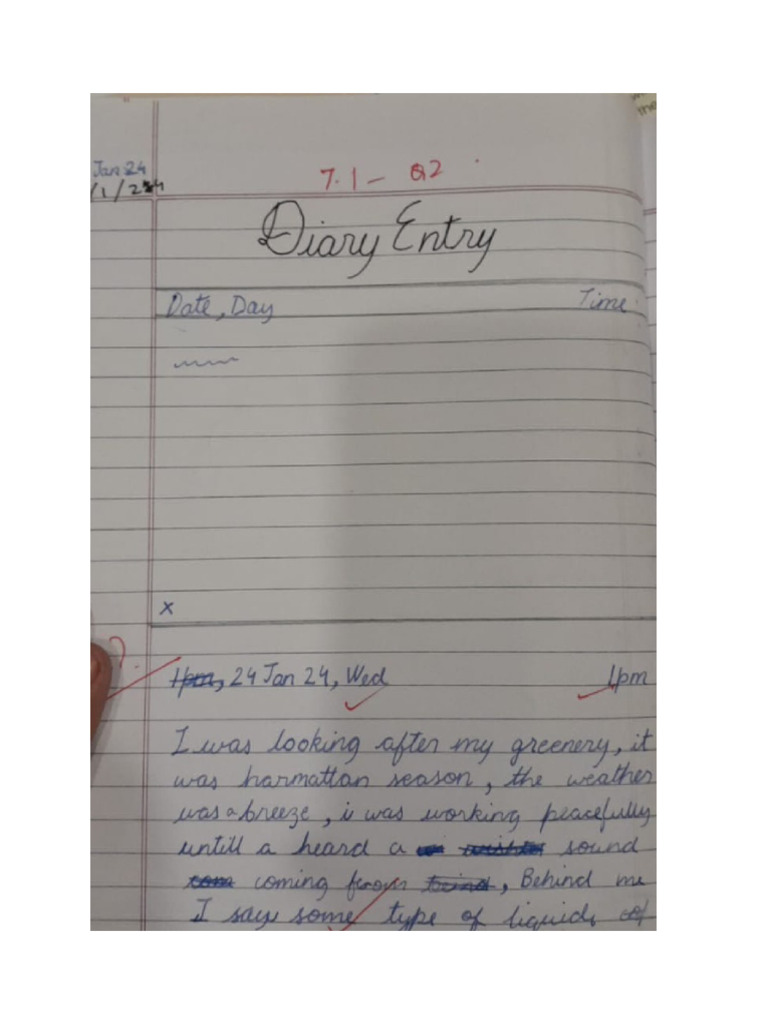 Jan 24
/1/24
7.1 - Q2
Diary Entry
Date, Day Time
x
?
1pm, 24 Jan 24, Wed 1pm
I was looking after my greenery, it
was harmattan season, the weather
was a breeze, i was working peacefully
untill a heard a sound
coming from behind, Behind me
I saw some type of liquid